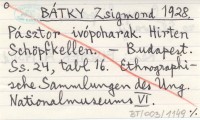 BÁTKY Zsigmond 1928.
Pásztor ivópoharak. Hirten
Schöpfkellen. – Budapest.
Ss. 24, tabl 16. Ethnographi-
sche Sammlungen des Ung.
Nationalmuseums VI.
BT/003/1149